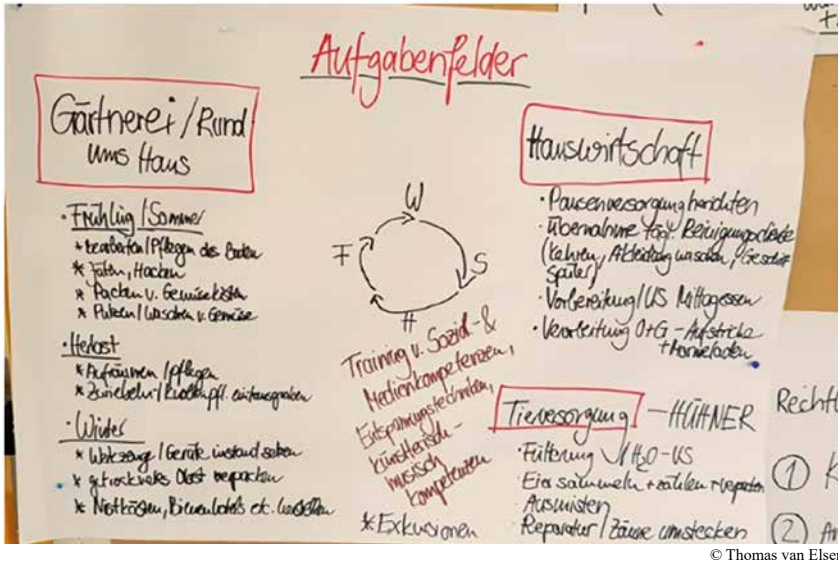 Aufgabenfelder
Gärtnerei / Rund
ums Haus
· Frühling / Sommer
* bearbeiten / Pflegen des Boden
* Jäten, Hacken
* Packen v. Gemüsekisten
* Putzen / Waschen v. Gemüse
· Herbst
* Aufräumen / pflegen
* Zwiebeln- / Knollenpfl.
· Winter
* Werkzeuge / Geräte instand setzen
* getrocknetes Obst verpacken
* Nistkästen, Bienenhotels etc. herstellen
W
F
S
H
Training v. Sozial- &
Medienkompetenzen,
Entspannungstechniken,
künstlerisch-
musisch
kompetenzen
* Exkursionen
Hauswirtschaft
· Pausenversorgung herrichten
· Übernahme tägl. Reinigungsdienste
(Kehren, Abkleidung waschen, Geschirr
spülen)
· Vorbereitung / US Mittagessen
· Verarbeitung O+G - Aufstriche
+ Marmeladen
Tierversorgung - HÜHNER
· Fütterung / H₂O - US
· Eier sammeln + zählen + verpacken
· Ausmisten
· Reparatur / Zäune umstecken
Rechtl
① K
②
© Thomas van Elsen